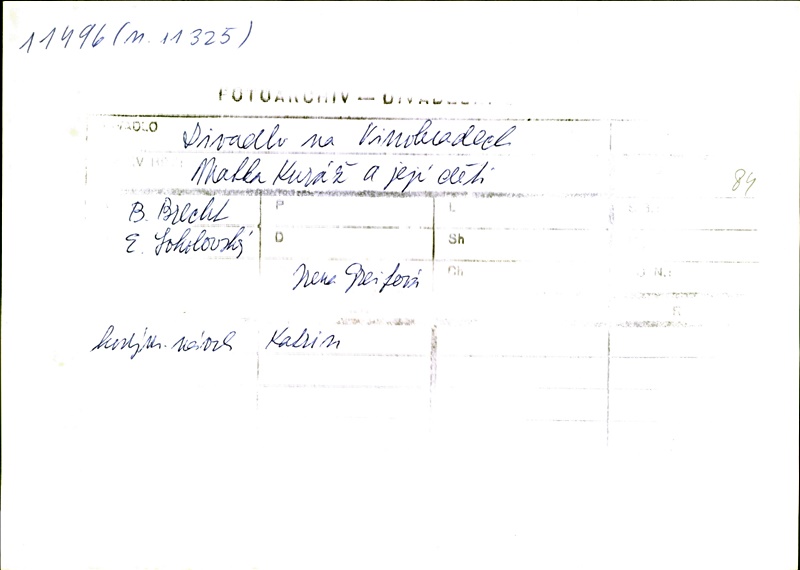 11496 (n. 11325)
FOTOARCHIV — DIVADEL
Divadlo na Vinohradech
Matka Kuráž a její děti
84
B. Brecht P
E. Sokolovský D Sh
Irena Greifová Ch
kostým. návrh Katrin